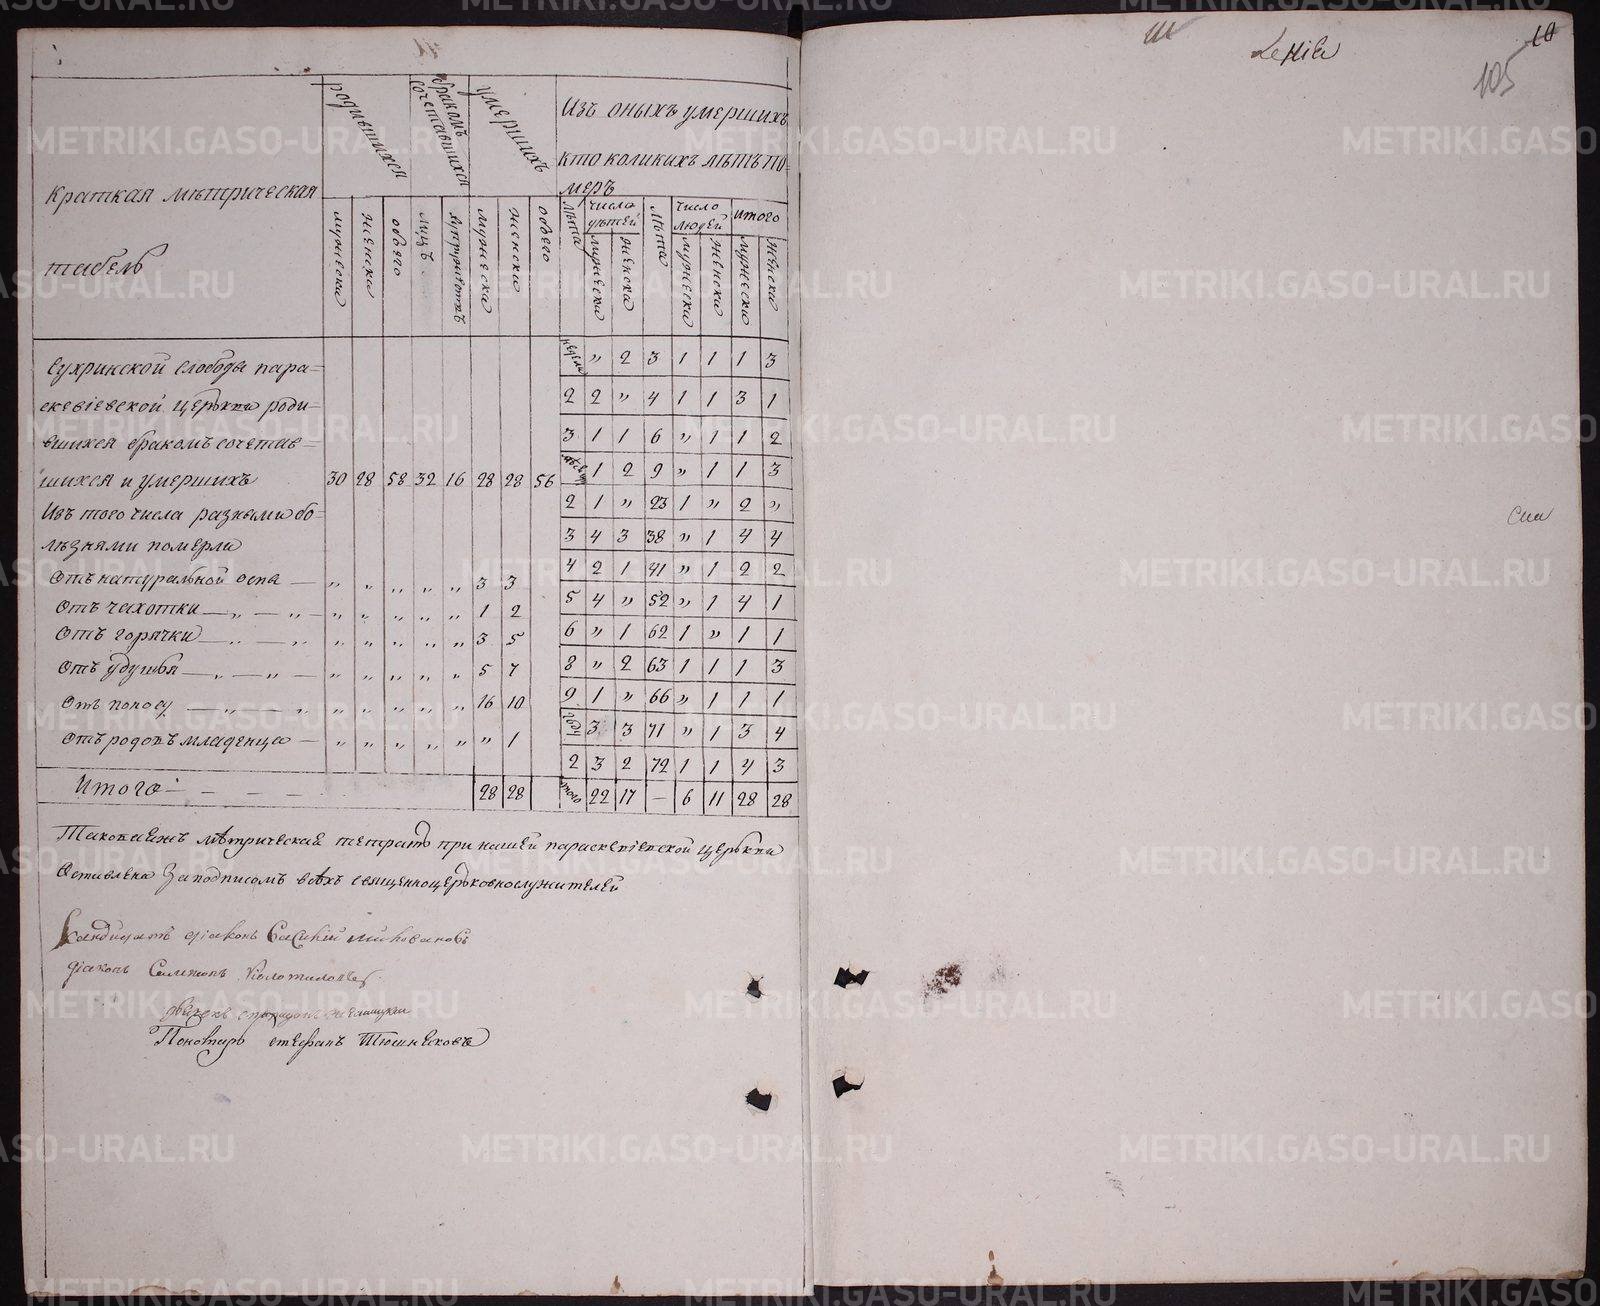 краткая метрическая
табель
родившихся
браком сочетавшихся
умершихъ
Изъ оныхъ умершихъ
кто коликихъ лѣтъ по-
меръ
мужеска
женска
обоего
лицъ
супружествъ
мужеска
женска
обоего
лѣта
число дѣтей
мужеска
женска
лѣта
число людей
мужеска
женска
итого
мужеска
женска
сухринской слободы пара=
скевіевской церькви роди=
вшихся бракомъ сочетав=
шихся и умершихъ 30 28 58 32 16 28 28 56
Изъ того числа разными бо=
лѣзнями померли
Отъ натуральной оспы — „ „ „ „ „ 3 3
Отъ чахотки — „ — „ — „ „ „ „ „ 1 2
Отъ горячки — „ — „ „ „ „ „ „ 3 5
Отъ удушья — „ — „ — „ „ „ „ „ 5 7
Отъ поносу — „ — „ „ „ „ „ „ 16 10
Отъ родовъ младенца — „ „ „ „ „ „ 1
Итого — — — — 28 28
недели „ 2 3 1 1 1 3
2 2 „ 4 1 1 3 1
3 1 1 6 „ 1 1 2
1 2 9 „ 1 1 3
2 1 „ 23 1 „ 2 „
3 4 3 38 „ 1 4 4
4 2 1 41 „ 1 2 2
5 4 „ 52 „ 1 4 1
6 „ 1 62 1 „ 1 1
8 „ 2 63 1 1 1 3
9 1 „ 66 „ 1 1 1
годы 3 3 71 „ 1 3 4
2 3 2 72 1 1 4 3
итого 22 17 — 6 11 28 28
Таковаяжъ мѣтрическая тетрать при нашей параскевіевской церькви
Оставлена За подписомъ всѣхъ священноцерьковнослужителей
Кандидатъ діаконъ
діаконъ
Пономарь стефанъ Тюшняковъ
10
105
METRIKI.GASO-URAL.RU